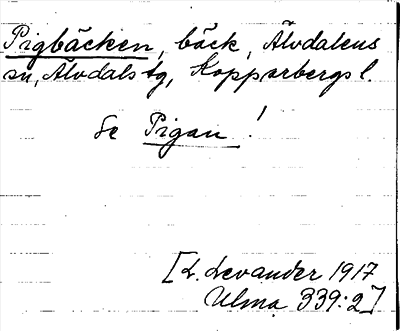 Pigbäcken, bäck, Älvdalens
sn, Älvdals tg, Kopparbergs l.
Se Pigan!
[L. Levander 1917
Ulma 339:2]